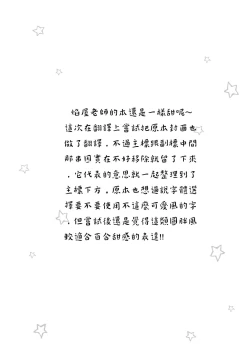 焰屋老師的本還是一樣甜呢~
這次在翻譯上嘗試把原本封面也
做了翻譯，不過主標跟副標中間
那串因實在不好移除就留了下來
，它代表的意思就一起整理到了
主標下方，原本也想過說字體選
擇要不要使用不這麼可愛風的字
，但嘗試後還是覺得這類圓胖風
較適合百合甜感的表達!!